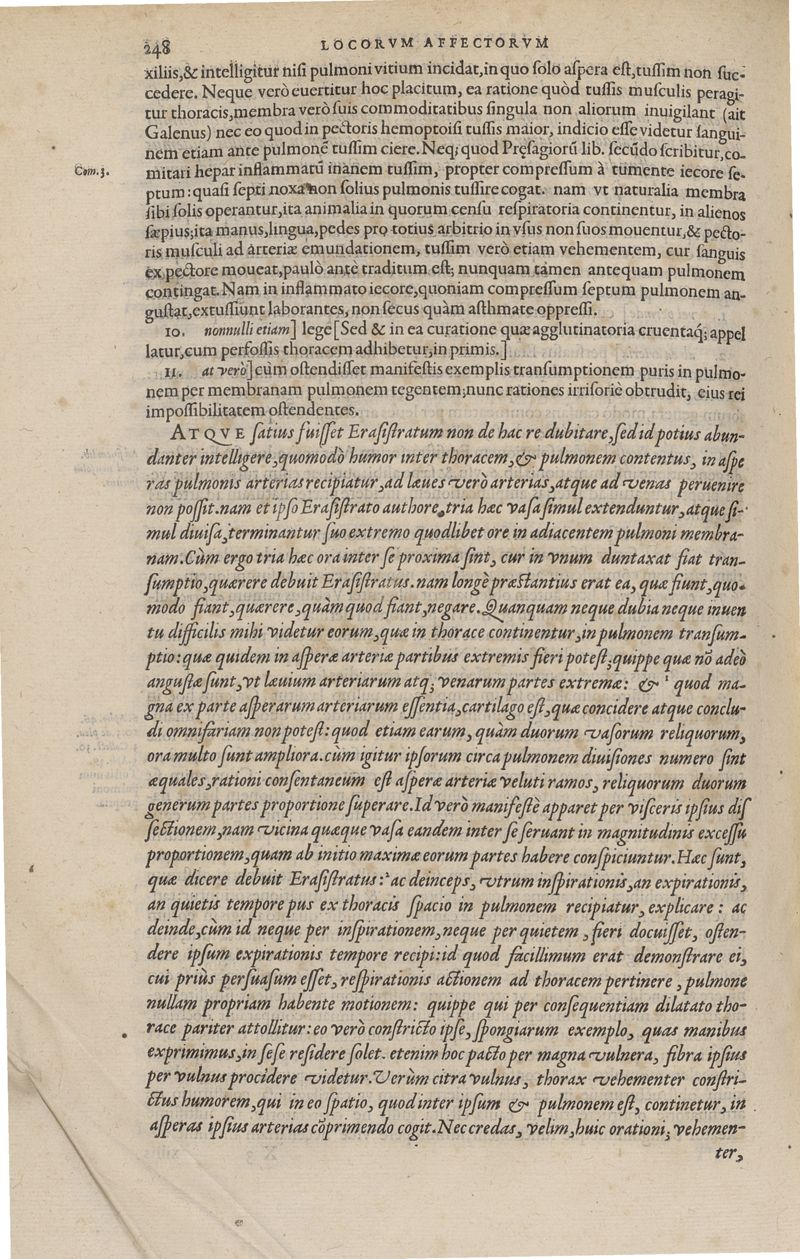 248 LOCORVM AFFECTORVM
xiliis,& intelligitur nisi pulmoni vitium incidat,in quo solo aspera est,tussim non suc-
cedere. Neque verò euertitur hoc placitum, ea ratione quòd tussis musculis peragi-
tur thoracis,membra verò suis commoditatibus singula non aliorum inuigilant (ait
Galenus) nec eo quod in pectoris hemoptoisi tussis maior, indicio esse videtur sangui-
nem etiam ante pulmonē tussim ciere. Neq; quod Pręsagiorū lib. secūdo scribitur,co-
Com.3. mitari hepar inflammatū inanem tussim, propter compressum à tumente iecore se-
ptum: quasi septi noxa non solius pulmonis tussire cogat. nam vt naturalia membra
sibi solis operantur,ita animalia in quorum censu respiratoria continentur, in alienos
sæpius;ita manus,lingua,pedes pro totius arbitrio in vsus non suos mouentur,& pecto-
ris musculi ad arteriæ emundationem, tussim verò etiam vehementem, cur sanguis
ex pectore moueat,paulò antè traditum est; nunquam tamen antequam pulmonem
contingat. Nam in inflammato iecore,quoniam compressum septum pulmonem an-
gustat,extussiunt laborantes, non secus quàm asthmate oppressi.
10. nonnulli etiam] lege [Sed & in ea curatione quæ agglutinatoria cruentaq́; appel
latur,cum perfossis thoracem adhibetur,in primis.]
11. at verò] cùm ostendisset manifestis exemplis transumptionem puris in pulmo-
nem per membranam pulmonem tegentem;nunc rationes irrisoriè obtrudit, eius rei
impossibilitatem ostendentes.
ATQVE satius fuisset Erasistratum non de hac re dubitare,sed id potius abun-
danter intelligere,quomodo humor inter thoracem,& pulmonem contentus, in aspe
ras pulmonis arterias recipiatur,ad læues verò arterias,atque ad venas peruenire
non possit.nam et ipso Erasistrato authore,tria hæc vasa simul extenduntur,atque si-
mul diuisa,terminantur suo extremo quodlibet ore in adiacentem pulmoni membra-
nam.Cùm ergo tria hæc ora inter se proxima sint, cur in vnum duntaxat fiat tran-
sumptio,quærere debuit Erasistratus.nam longè præstantius erat ea, quæ fiunt,quo-
modo fiant,quærere,quàm quod fiant,negare.Quanquam neque dubia neque inuen
tu difficilis mihi videtur eorum,quæ in thorace continentur,in pulmonem transum-
ptio: quæ quidem in asperæ arteriæ partibus extremis fieri potest;quippe quæ nō adeò
angustæ sunt,vt læuium arteriarum atq; venarum partes extremæ: & ¹ quod ma-
gna ex parte asperarum arteriarum essentia,cartilago est,quæ concidere atque conclu-
di omnifariam non potest: quod etiam earum, quàm duorum vasorum reliquorum,
ora multo sunt ampliora.cùm igitur ipsorum circa pulmonem diuisiones numero sint
æquales,rationi consentaneum est asperæ arteriæ veluti ramos, reliquorum duorum
generum partes proportione superare.Id verò manifestè apparet per visceris ipsius dis
sectionem,nam vicina quæque vasa eandem inter se seruant in magnitudinis excessu
proportionem,quam ab initio maximæ eorum partes habere conspiciuntur.Hæc sunt,
quæ dicere debuit Erasistratus:² ac deinceps, vtrum inspirationis,an expirationis,
an quietis tempore pus ex thoracis spacio in pulmonem recipiatur, explicare: ac
deinde,cùm id neque per inspirationem,neque per quietem , fieri docuisset, osten-
dere ipsum expirationis tempore recipi:id quod facillimum erat demonstrare ei,
cui priùs persuasum esset, respirationis actionem ad thoracem pertinere , pulmone
nullam propriam habente motionem: quippe qui per consequentiam dilatato tho-
race pariter attollitur: eo verò constricto ipse, spongiarum exemplo, quas manibus
exprimimus,in sese residere solet. etenim hoc pacto per magna vulnera, fibra ipsius
per vulnus procidere videtur.Verùm citra vulnus, thorax vehementer constri-
ctus humorem,qui in eo spatio, quod inter ipsum & pulmonem est, continetur, in
asperas ipsius arterias cōprimendo cogit.Nec credas, velim,huic orationi; vehemen-
ter,